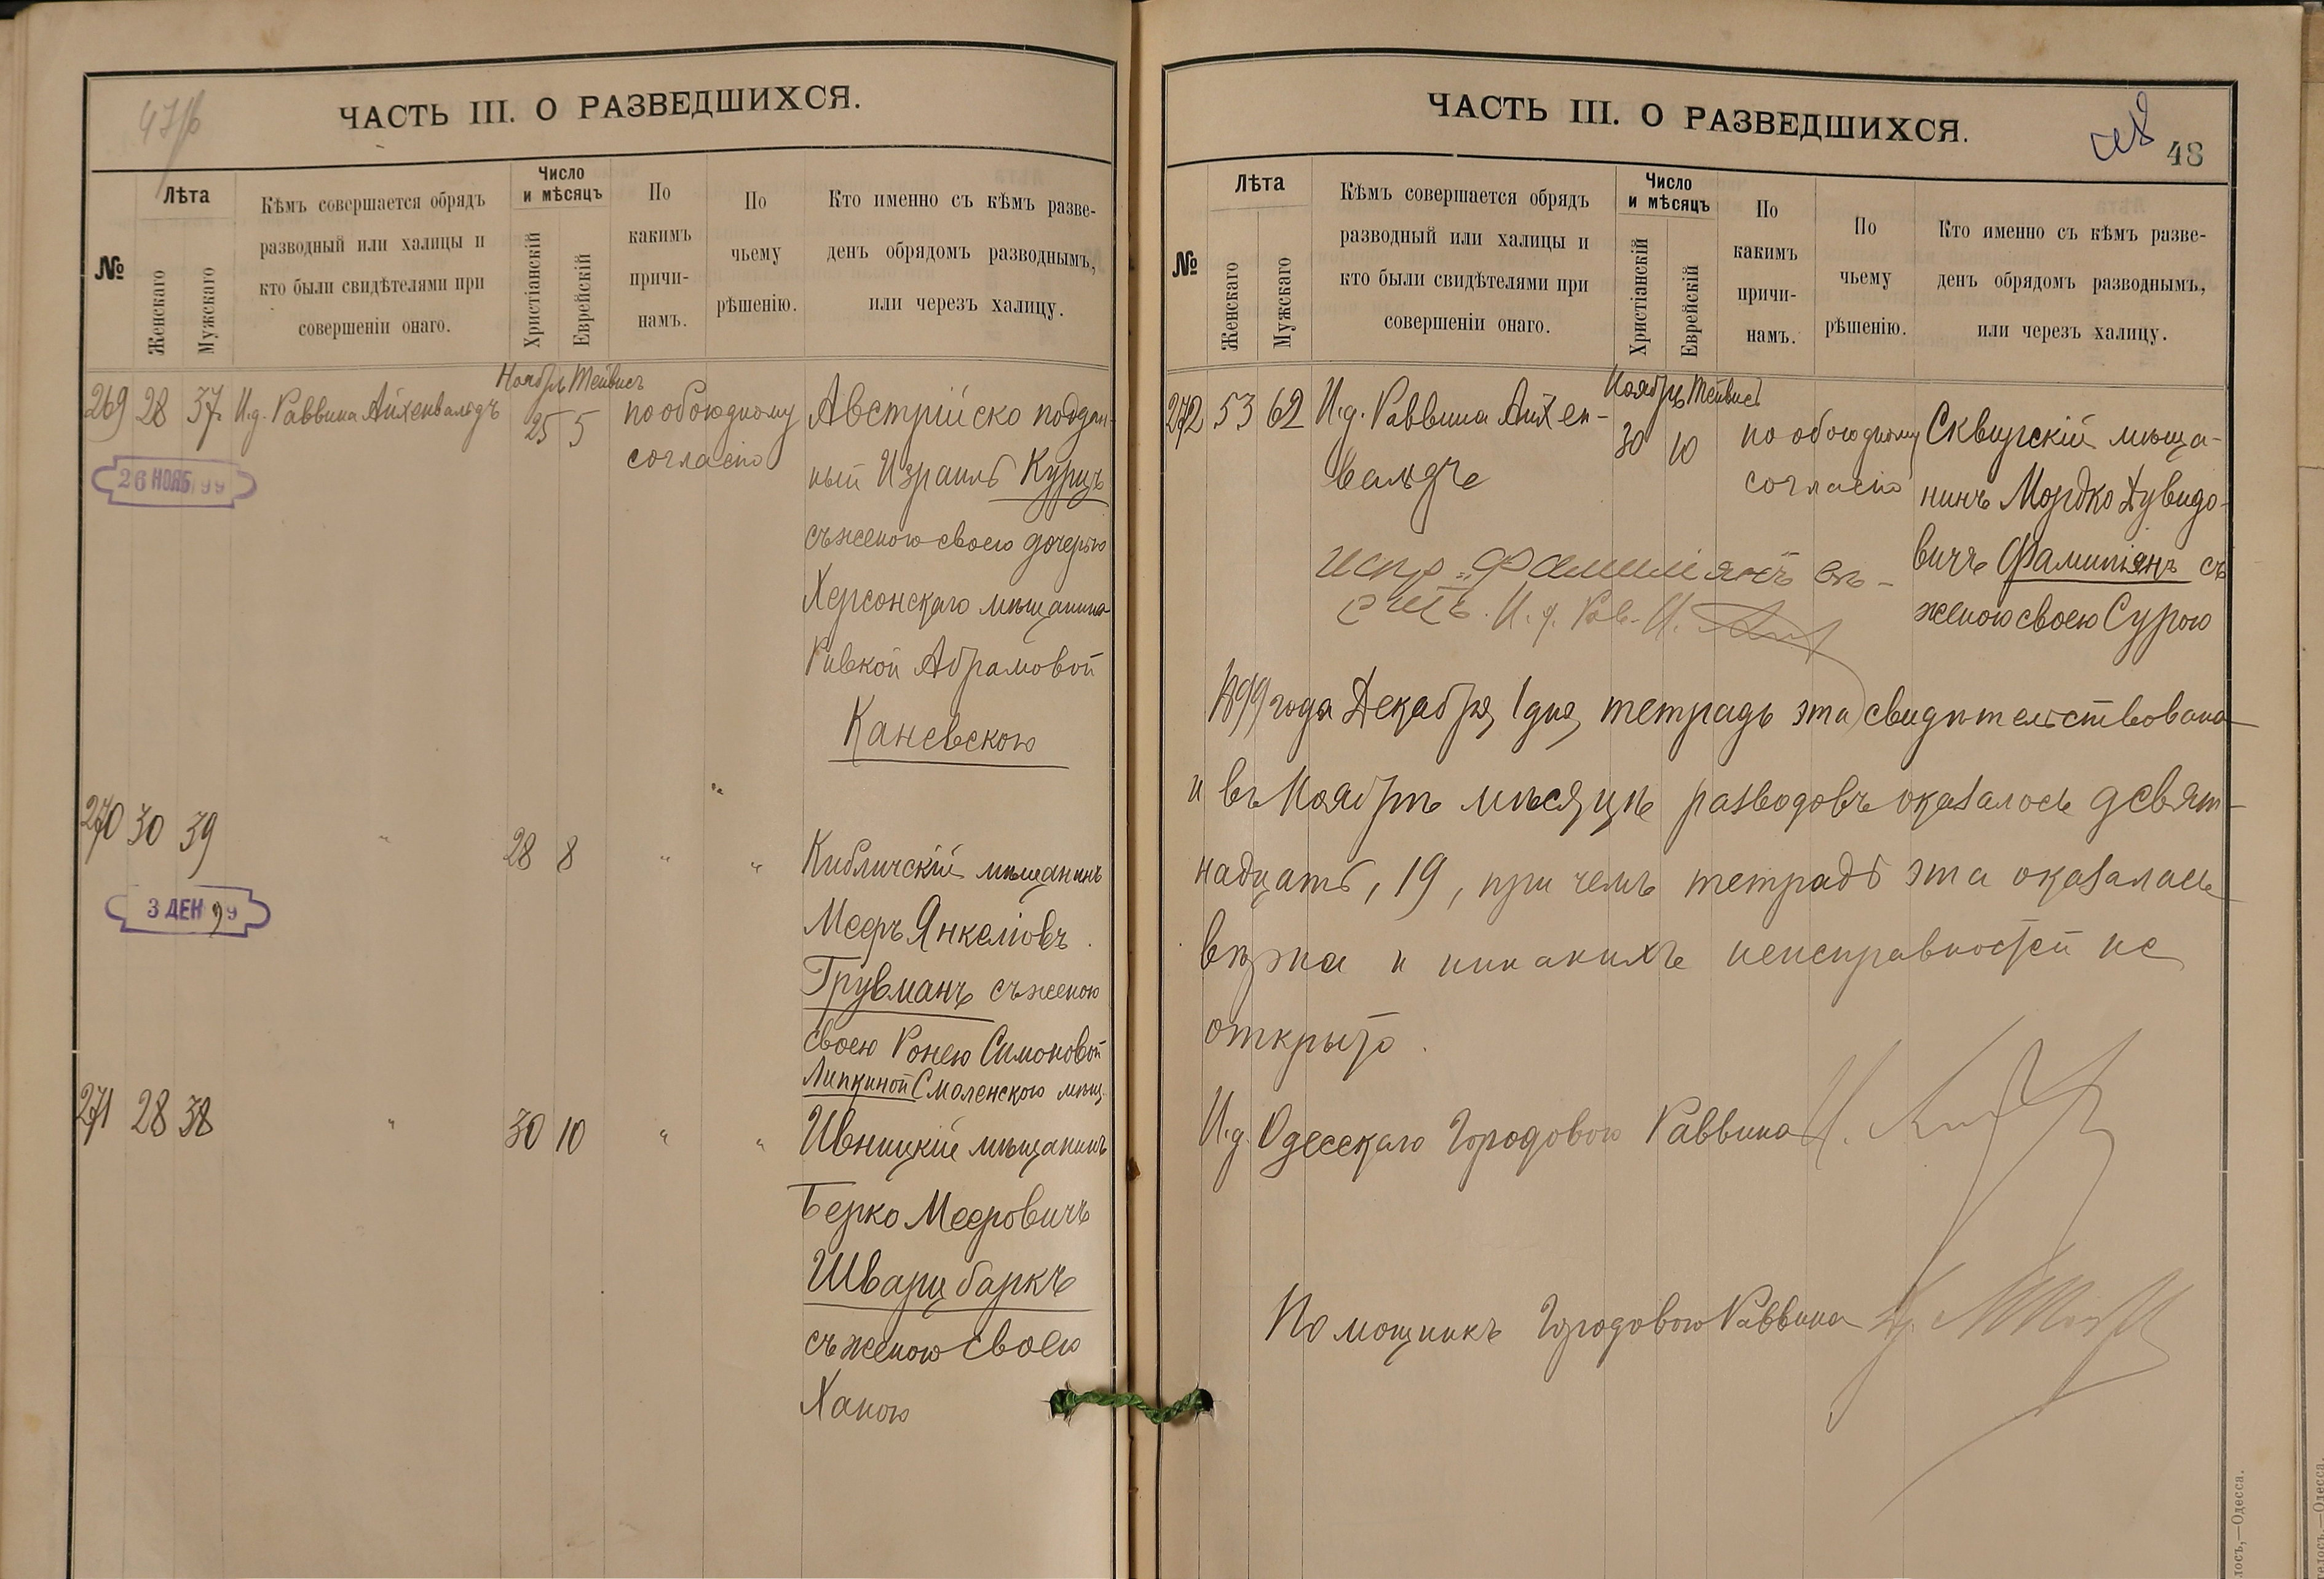 47/б
ЧАСТЬ III. О РАЗВЕДШИХСЯ.
№
Лѣта
Женскаго
Мужскаго
Кѣмъ совершается обрядъ
разводный или халицы и
кто были свидѣтелями при
совершеніи онаго.
Число
и мѣсяцъ
Христіанскій
Еврейскій
По
какимъ
причи-
намъ.
По
чьему
рѣшенію.
Кто именно съ кѣмъ разве-
денъ обрядомъ разводнымъ,
или черезъ халицу.
Ноябрь Тейвисъ
269 28 37 И.д. Раввина Айхенвальдъ 25 5 по обоюдному Австрійско поддан-
согласію ный Израиль Курцъ
26 НОЯБ 99
съ женою своею дочерью
Херсонскаго мѣщанина
Ривкой Абрамовой
Каневскою
270 30 39 " 28 8 " " Кибличскій мѣщанинъ
3 ДЕК 99
Мееръ Янкеліовъ
Грувманъ съ женою
своею Ронею Симоновой
Липкиной Смоленскою мѣщ.
271 28 38 " 30 10 " " Ивницкій мѣщанинъ
Берко Мееровичъ
Шварцбаркъ
съ женою своею
Ханою
ЧАСТЬ III. О РАЗВЕДШИХСЯ.
48
№
Лѣта
Женскаго
Мужскаго
Кѣмъ совершается обрядъ
разводный или халицы и
кто были свидѣтелями при
совершеніи онаго.
Число
и мѣсяцъ
Христіанскій
Еврейскій
По
какимъ
причи-
намъ.
По
чьему
рѣшенію.
Кто именно съ кѣмъ разве-
денъ обрядомъ разводнымъ,
или черезъ халицу.
Ноябрь Тейвисъ
272 53 62 И.д. Раввина Айхен- 30 10 по обоюдному Сквирскій мѣща-
вальдъ согласію нинъ Мордко Дувидо-
вичъ Фамиліянъ съ
испр. „Фамиліянъ вѣ-
женою своею Сурою
И. д. Рав. И.
1899 года Декабря 1 дня, тетрадь эта свидѣтельствована
и въ Ноябрѣ мѣсяцѣ разводовъ оказалось девят-
надцать, 19, при чемъ тетрадь эта оказалась
вѣрна и никакихъ неисправностей не
открыто.
И.д. Одесскаго Городового Раввина И.
Помощникъ Городового Раввина
лось,—Одесса.